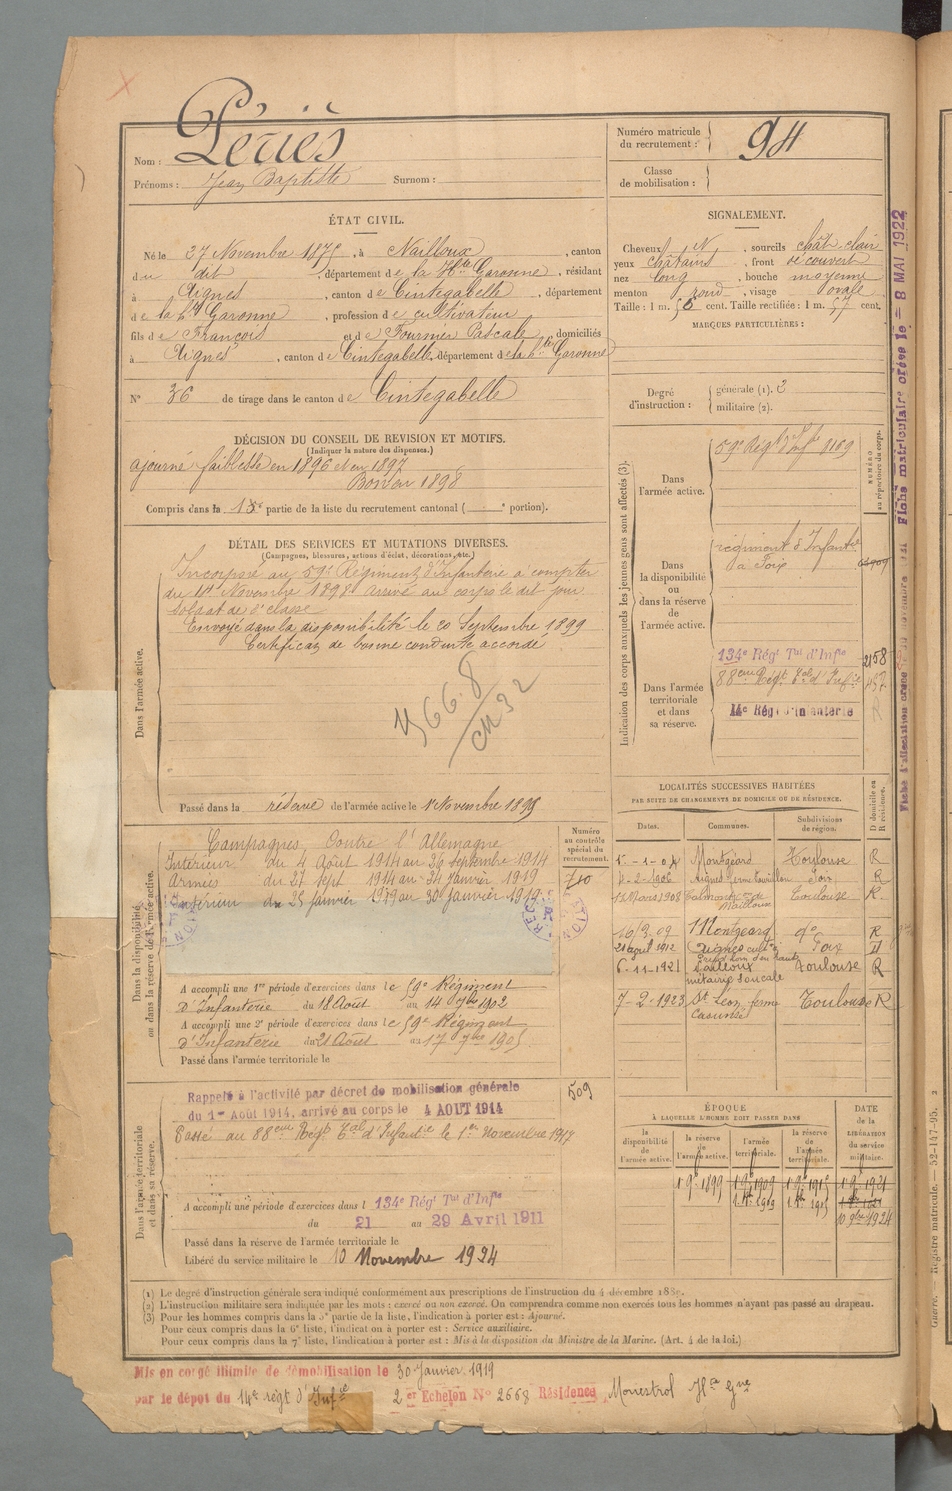 Nom : Périès
Prénoms : Jean Baptiste Surnom :
Numéro matricule du recrutement : 94
Classe de mobilisation :
ÉTAT CIVIL.
Né le 27 Novembre 1875, à Nailloux, canton
du dit, département de la Hte Garonne, résidant
à Aignes, canton de Cintegabelle, département
de la hte Garonne, profession de cultivateur
fils de François et de Fournier Pascale, domiciliés
à Aignes, canton de Cintegabelle, département de la hte Garonne
N° 36 de tirage dans le canton de Cintegabelle
SIGNALEMENT.
Cheveux N, sourcils chât-clair
yeux châtains, front découvert
nez long, bouche moyenne
menton rond, visage ovale
Taille : 1 m. 56 cent. Taille rectifiée : 1 m. 57 cent.
MARQUES PARTICULIÈRES :
Degré d'instruction : générale (1). 2
militaire (2).
DÉCISION DU CONSEIL DE REVISION ET MOTIFS.
(Indiquer la nature des dispenses.)
ajourné faiblesse en 1896 et en 1897
Bon en 1898
Compris dans la 1re partie de la liste du recrutement cantonal ( e portion).
DÉTAIL DES SERVICES ET MUTATIONS DIVERSES.
(Campagnes, blessures, actions d'éclat, décorations, etc.)
Dans l'armée active.
Incorporé au 59e Régiment d'Infanterie à compter
du 14 Novembre 1898 Arrivé au corps le dit jour
Soldat de 2e classe
Envoyé dans la disponibilité le 20 Septembre 1899
Certificat de bonne conduite accordé
Passé dans la réserve de l'armée active le 1 Novembre 1899
Indication des corps auxquels les jeunes gens sont affectés (3).
NUMÉRO au répertoire du corps.
Dans l'armée active.
59e Régt d'Inft 9169
Dans la disponibilité ou dans la réserve de l'armée active.
régiment d'Infanterie
à Foix
Dans l'armée territoriale et dans sa réserve.
134e Régt Tal d'Infie 2158
88eme Régt Tal d'Infie
14e Régt d'infanterie
Dans la disponibilité ou dans la réserve de l'armée active.
Numéro au contrôle spécial du recrutement.
710
Campagnes Contre l'Allemagne
Intérieur du 4 Août 1914 au 26 septembre 1914
Armées du 27 sept. 1914 au 24 Janvier 1919
Intérieur du 25 janvier 1919 au 30 janvier 1919
A accompli une 1re période d'exercices dans le 59e Régiment
d'Infanterie du 18 Août au 14 7bre 1902
A accompli une 2e période d'exercices dans le 59e Régiment
d'Infanterie du 21 Août au 17 7bre 1905
Passé dans l'armée territoriale le
LOCALITÉS SUCCESSIVES HABITÉES
PAR SUITE DE CHANGEMENTS DE DOMICILE OU DE RÉSIDENCE.
Dates. Communes. Subdivisions de région. D domicile ou R résidence.
Montgeard Toulouse R
4-2-1906 Aignes Foix R
15 Mars 1908 Toulouse R
16/3 09 Montgeard do R
21 avril 1912 Aignes Foix D
6-11-1921 Nailloux Toulouse R
7-2-1923 St Léon ferme Toulouse R
Dans l'armée territoriale et dans sa réserve.
Rappelé à l'activité par décret de mobilisation générale
du 1er Août 1914, arrivé au corps le 4 AOUT 1914
509
Passé au 88eme Régt Tal d'Infantie le 1er Novembre 1917
A accompli une période d'exercices dans l 134e Régt Tal d'Infie
du 21 au 29 Avril 1911
Passé dans la réserve de l'armée territoriale le
Libéré du service militaire le 10 Novembre 1924
ÉPOQUE
À LAQUELLE L'HOMME DOIT PASSER DANS
la disponibilité de l'armée active. la réserve de l'armée active. l'armée territoriale. la réserve de l'armée territoriale. DATE de la LIBÉRATION du service militaire.
10 9bre 1924
(1) Le degré d'instruction générale sera indiqué conformément aux prescriptions de l'instruction du 4 décembre 1889.
(2) L'instruction militaire sera indiquée par les mots : exercé ou non exercé. On comprendra comme non exercés tous les hommes n'ayant pas passé au drapeau.
(3) Pour les hommes compris dans la 5e partie de la liste, l'indication à porter est : Ajourné.
Pour ceux compris dans la 6e liste, l'indication à porter est : Service auxiliaire.
Pour ceux compris dans la 7e liste, l'indication à porter est : Mis à la disposition du Ministre de la Marine. (Art. 4 de la loi.)
Mis en congé illimité de démobilisation le 30 Janvier 1919
par le dépot du 14e régt d'Infie 2er Echelon N° 2668 Résidence Monestrol Hte Gne
Fiche matriculaire créée le = 8 MAI 1922